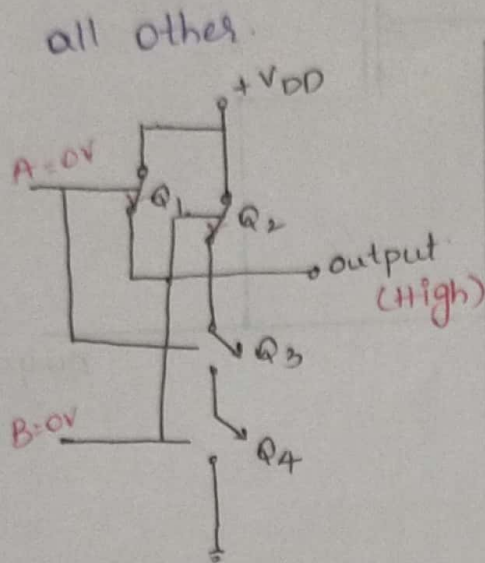 all other.
+ VDD
A = 0V
Q1
Q2
output
(High)
Q3
B=0V
Q4